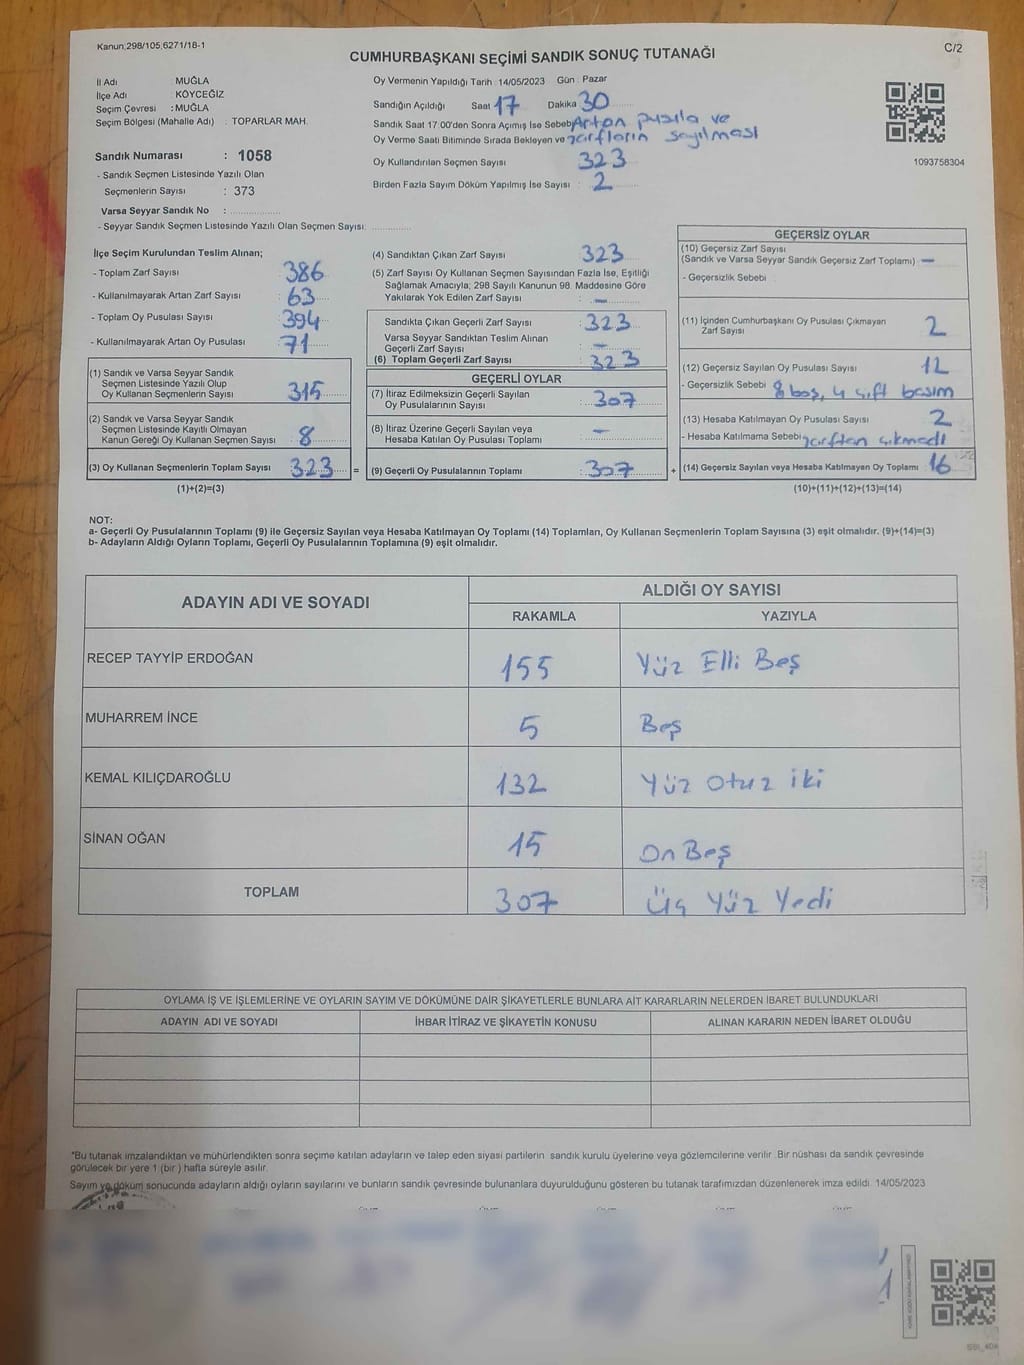 Kanun;298/105,6271/18-1
C/2
CUMHURBAŞKANI SEÇİMİ SANDIK SONUÇ TUTANAĞI
İl Adı : MUĞLA
İlçe Adı : KÖYCEĞİZ
Seçim Çevresi : MUĞLA
Seçim Bölgesi (Mahalle Adı) : TOPARLAR MAH.
Sandık Numarası : 1058
- Sandık Seçmen Listesinde Yazılı Olan
Seçmenlerin Sayısı : 373
Varsa Seyyar Sandık No :
- Seyyar Sandık Seçmen Listesinde Yazılı Olan Seçmen Sayısı:
Oy Vermenin Yapıldığı Tarih : 14/05/2023 Gün : Pazar
Sandığın Açıldığı Saat 17 Dakika 30
Sandık Saat 17:00'den Sonra Açımış İse Sebebi Artan pusula ve
Oy Verme Saati Bitiminde Sırada Bekleyen ve zarfların sayılması
Oy Kullandırılan Seçmen Sayısı 323
Birden Fazla Sayım Döküm Yapılmış İse Sayısı : 2
1093758304
İlçe Seçim Kurulundan Teslim Alınan;
- Toplam Zarf Sayısı : 386
- Kullanılmayarak Artan Zarf Sayısı : 63
- Toplam Oy Pusulası Sayısı : 394
- Kullanılmayarak Artan Oy Pusulası : 71
(1) Sandık ve Varsa Seyyar Sandık
Seçmen Listesinde Yazılı Olup
Oy Kullanan Seçmenlerin Sayısı : 315
(2) Sandık ve Varsa Seyyar Sandık
Seçmen Listesinde Kayıtlı Olmayan
Kanun Gereği Oy Kullanan Seçmen Sayısı : 8
(3) Oy Kullanan Seçmenlerin Toplam Sayısı : 323 =
(1)+(2)=(3)
(4) Sandıktan Çıkan Zarf Sayısı : 323
(5) Zarf Sayısı Oy Kullanan Seçmen Sayısından Fazla İse, Eşitliği
Sağlamak Amacıyla; 298 Sayılı Kanunun 98. Maddesine Göre
Yakılarak Yok Edilen Zarf Sayısı : —
Sandıkta Çıkan Geçerli Zarf Sayısı : 323
Varsa Seyyar Sandıktan Teslim Alınan
Geçerli Zarf Sayısı : —
(6) Toplam Geçerli Zarf Sayısı : 323
GEÇERLİ OYLAR
(7) İtiraz Edilmeksizin Geçerli Sayılan
Oy Pusulalarının Sayısı : 307
(8) İtiraz Üzerine Geçerli Sayılan veya
Hesaba Katılan Oy Pusulası Toplamı : —
(9) Geçerli Oy Pusulalarının Toplamı : 307 +
GEÇERSİZ OYLAR
(10) Geçersiz Zarf Sayısı
(Sandık ve Varsa Seyyar Sandık Geçersiz Zarf Toplamı) : —
- Geçersizlik Sebebi :
(11) İçinden Cumhurbaşkanı Oy Pusulası Çıkmayan
Zarf Sayısı : 2
(12) Geçersiz Sayılan Oy Pusulası Sayısı : 12
- Geçersizlik Sebebi : 8 boş, 4 çift basım
(13) Hesaba Katılmayan Oy Pusulası Sayısı : 2
- Hesaba Katılmama Sebebi: zarftan çıkmadı
(14) Geçersiz Sayılan veya Hesaba Katılmayan Oy Toplamı : 16
(10)+(11)+(12)+(13)=(14)
NOT:
a- Geçerli Oy Pusulalarının Toplamı (9) ile Geçersiz Sayılan veya Hesaba Katılmayan Oy Toplamı (14) Toplamları, Oy Kullanan Seçmenlerin Toplam Sayısına (3) eşit olmalıdır. (9)+(14)=(3)
b- Adayların Aldığı Oyların Toplamı, Geçerli Oy Pusulalarının Toplamına (9) eşit olmalıdır.
ADAYIN ADI VE SOYADI ALDIĞI OY SAYISI
RAKAMLA YAZIYLA
RECEP TAYYİP ERDOĞAN 155 Yüz Elli Beş
MUHARREM İNCE 5 Beş
KEMAL KILIÇDAROĞLU 132 Yüz Otuz iki
SİNAN OĞAN 15 On Beş
TOPLAM 307 Üç Yüz Yedi
OYLAMA İŞ VE İŞLEMLERİNE VE OYLARIN SAYIM VE DÖKÜMÜNE DAİR ŞİKAYETLERLE BUNLARA AİT KARARLARIN NELERDEN İBARET BULUNDUKLARI
ADAYIN ADI VE SOYADI İHBAR İTİRAZ VE ŞİKAYETİN KONUSU ALINAN KARARIN NEDEN İBARET OLDUĞU
*Bu tutanak imzalandıktan ve mühürlendikten sonra seçime katılan adayların ve talep eden siyasi partilerin sandık kurulu üyelerine veya gözlemcilerine verilir. Bir nüshası da sandık çevresinde
görülecek bir yere 1 (bir) hafta süreyle asılır.
Sayım ve döküm sonucunda adayların aldığı oyların sayılarını ve bunların sandık çevresinde bulunanlara duyurulduğunu gösteren bu tutanak tarafımızdan düzenlenerek imza edildi. 14/05/2023